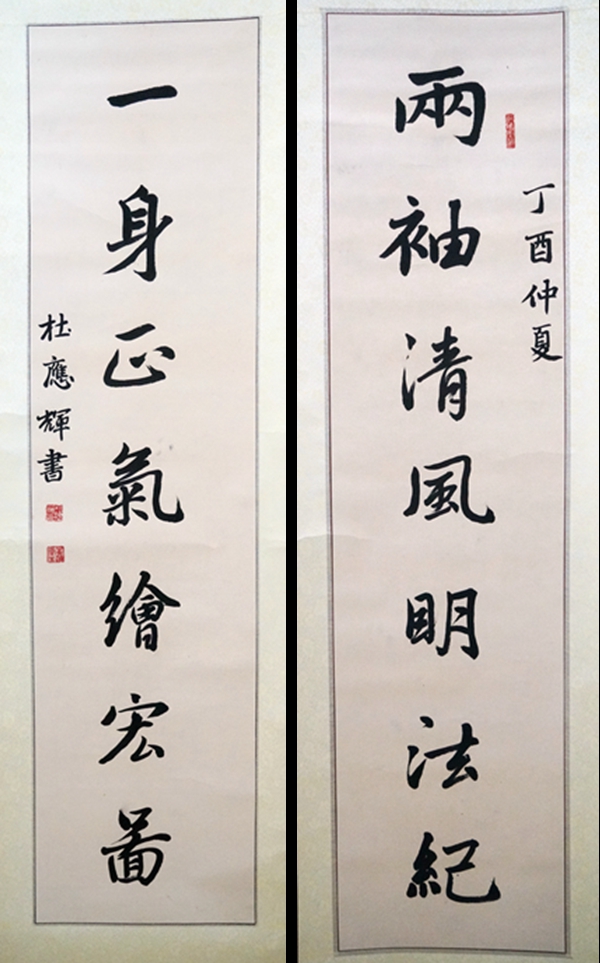 丁酉仲夏
兩袖清風明法紀
一身正氣繪宏圖
杜應輝書